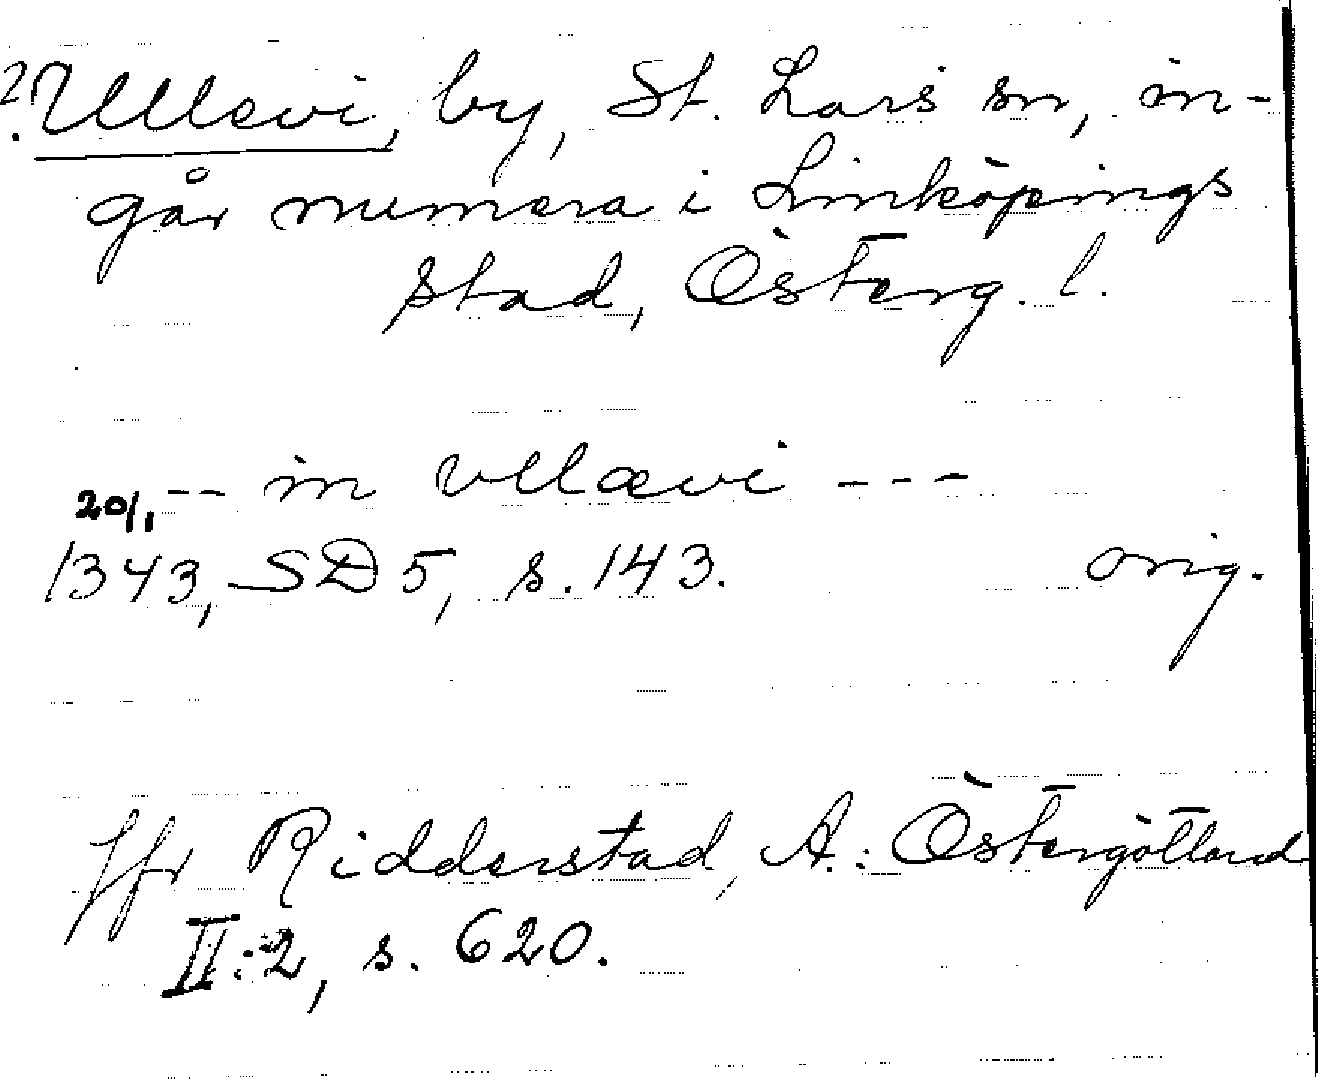 ?. Ullevi, by, St. Lars sn, in-
går numera i Linköpings
stad, Österg. l.
20/1 -- in vllæwi ---
1343, SD 5, s. 143. orig.
Jfr Ridderstad, A.: Östergötland
II:2, s. 620.